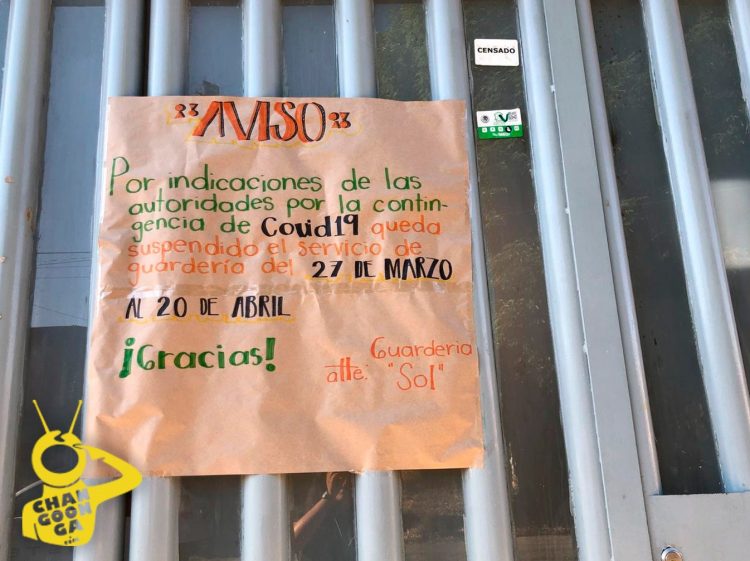 CENSADO
AVISO
Por indicaciones de las
autoridades por la contin-
gencia de Covid19 queda
suspendido el servicio de
guardería del 27 DE MARZO
AL 20 DE ABRIL
¡Gracias!
Guarderia
atte: "Sol"
CHAN
GOON
GA